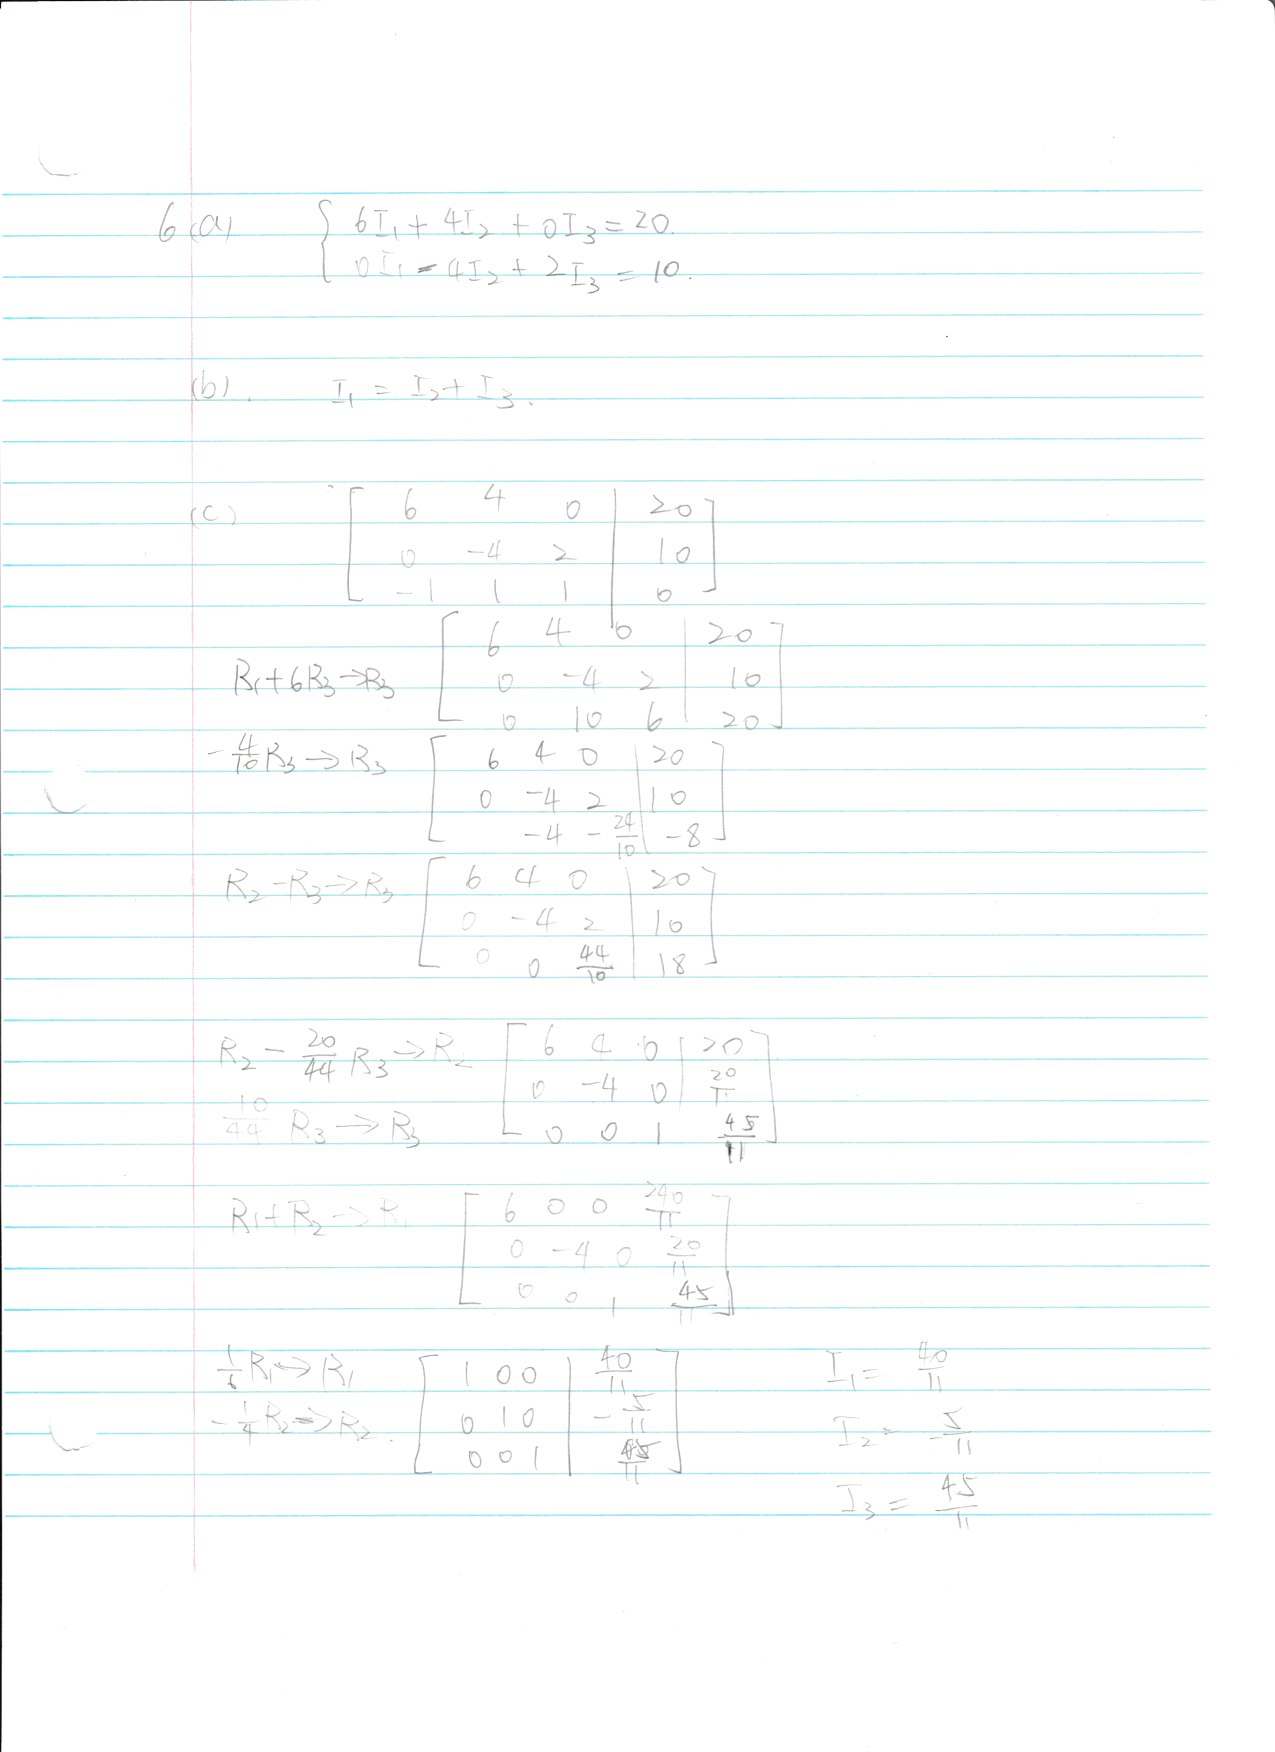 6 (a) { 6I₁ + 4I₂ + 0I₃ = 20.
0I₁ - 4I₂ + 2I₃ = 10.
(b). I₁ = I₂ + I₃.
(c) [ 6 4 0 | 20 ]
0 -4 2 | 10
-1 1 1 | 0
[ 6 4 0 | 20 ]
R₁+6R₃→R₃ 0 -4 2 | 10
0 10 6 | 20
-4/10 R₃→R₃ [ 6 4 0 | 20 ]
0 -4 2 | 10
-4 -24/10 | -8
R₂-R₃→R₃ [ 6 4 0 | 20 ]
0 -4 2 | 10
0 0 44/10 | 18
R₂ - 20/44 R₃→R₂ [ 6 4 0 | 20 ]
0 -4 0 | 20/11
10/44 R₃→R₃ 0 0 1 45/11
R₁+R₂→R₁ [ 6 0 0 240/11 ]
0 -4 0 20/11
0 0 1 45/11
1/6 R₁→R₁ [ 1 0 0 | 40/11 ] I₁ = 40/11
-1/4 R₂→R₂. 0 1 0 | -5/11 I₂ = -5/11
0 0 1 | 45/11 I₃ = 45/11